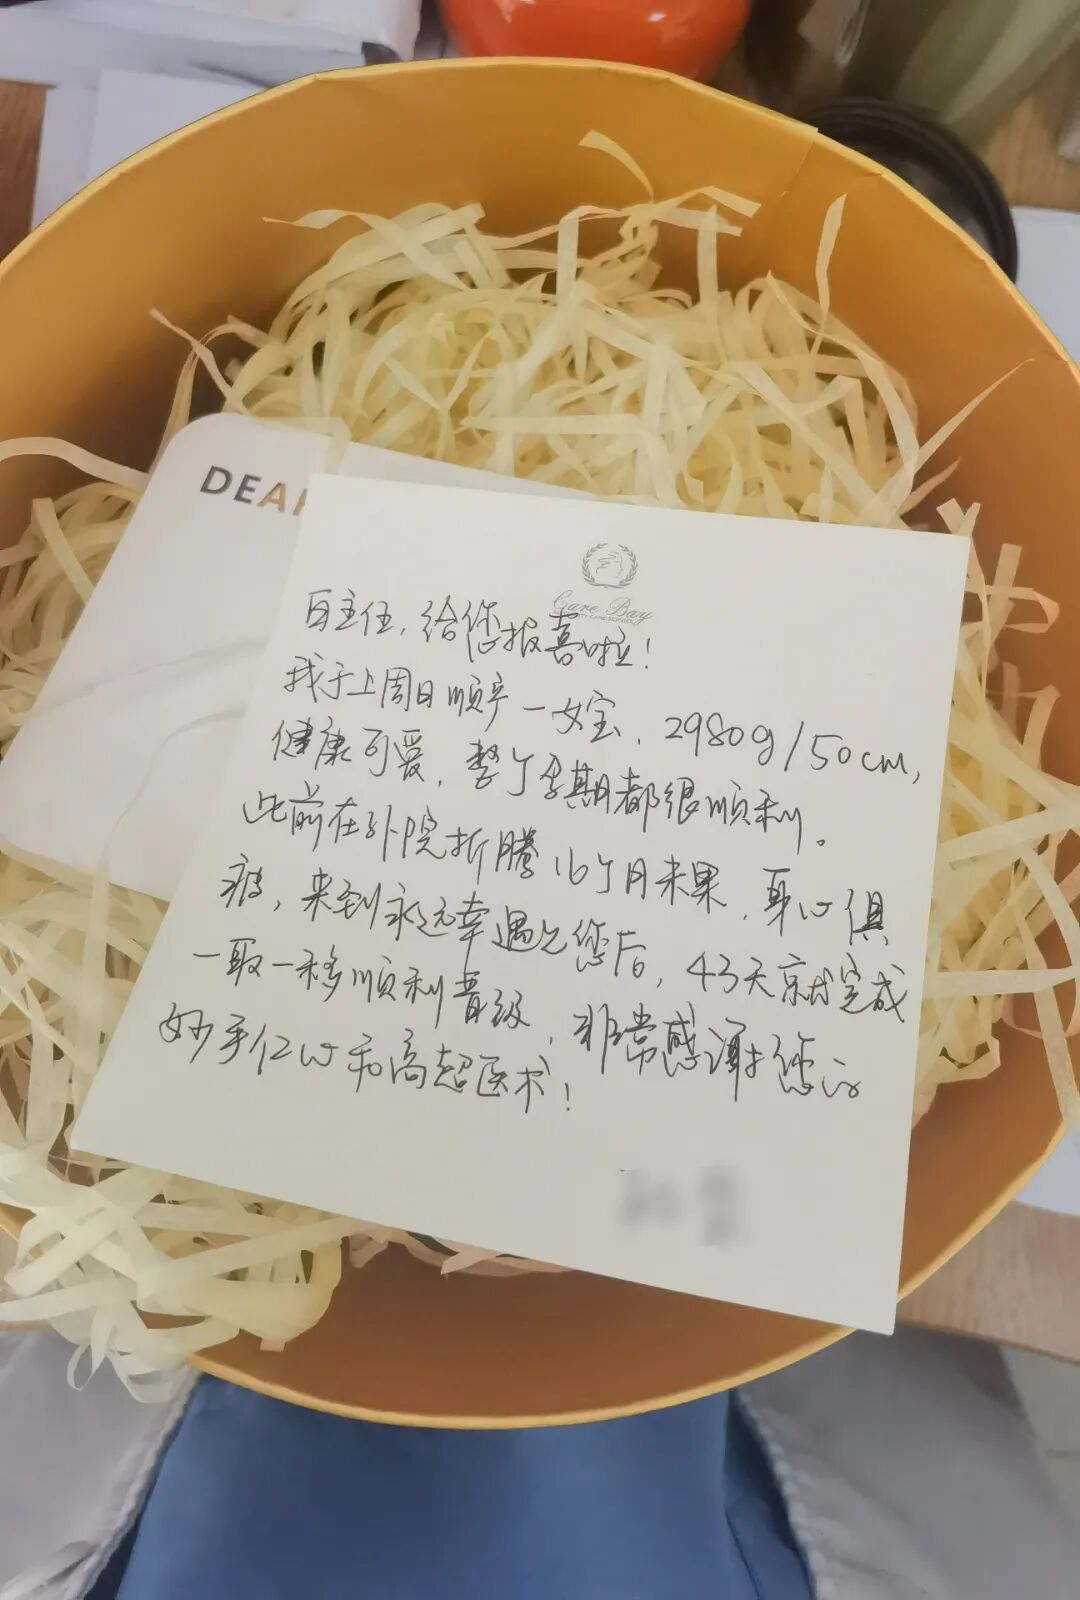 DEAR
Care Bay
白主任，给您报喜啦！
我于上周日顺产一女宝，2980g/50cm，
健康可爱，整个孕期都很顺利。
此前在外院折腾16个月未果，身心俱
疲，来到永远幸遇上您后，43天就完成
一取一移顺利晋级，非常感谢您的
妙手仁心和高超医术！